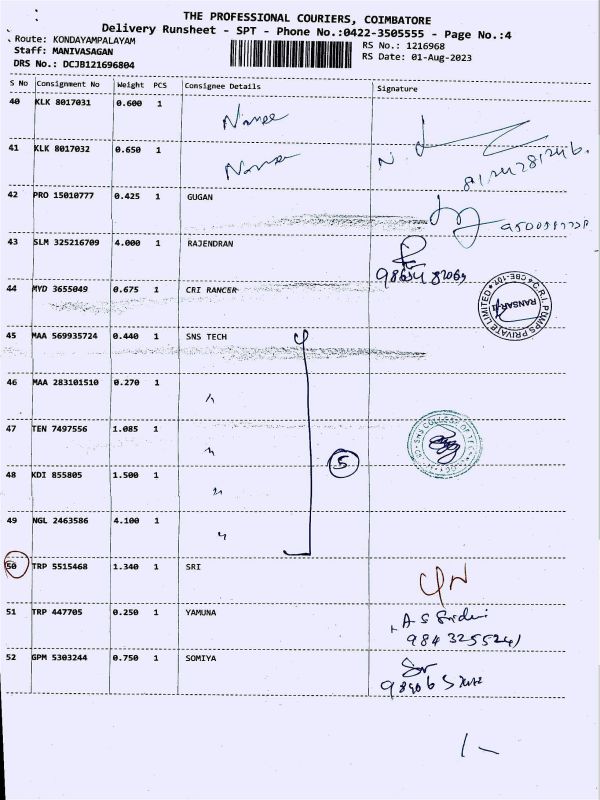 THE PROFESSIONAL COURIERS, COIMBATORE
Delivery Runsheet - SPT - Phone No.:0422-3505555 - Page No.:4
Route: KONDAYAMPALAYAM
Staff: MANIVASAGAN
DRS No.: DCJB121696804
RS No.: 1216968
RS Date: 01-Aug-2023
S No Consignment No Weight PCS Consignee Details Signature
40 KLK 8017031 0.600 1
41 KLK 8017032 0.650 1 N.
42 PRO 15010777 0.425 1 GUGAN
43 SLM 325216709 4.000 1 RAJENDRAN
44 MYD 3655049 0.675 1 CRI RANCER
C.R.I. PUMPS PRIVATE LIMITED
45 MAA 569935724 0.440 1 SNS TECH
46 MAA 283101510 0.270 1 "
47 TEN 7497556 1.085 1 "
5
48 KDI 855805 1.500 1 "
49 NGL 2463586 4.100 1 "
50 TRP 5515468 1.340 1 SRI
51 TRP 447705 0.250 1 YAMUNA
52 GPM 5303244 0.750 1 SOMIYA